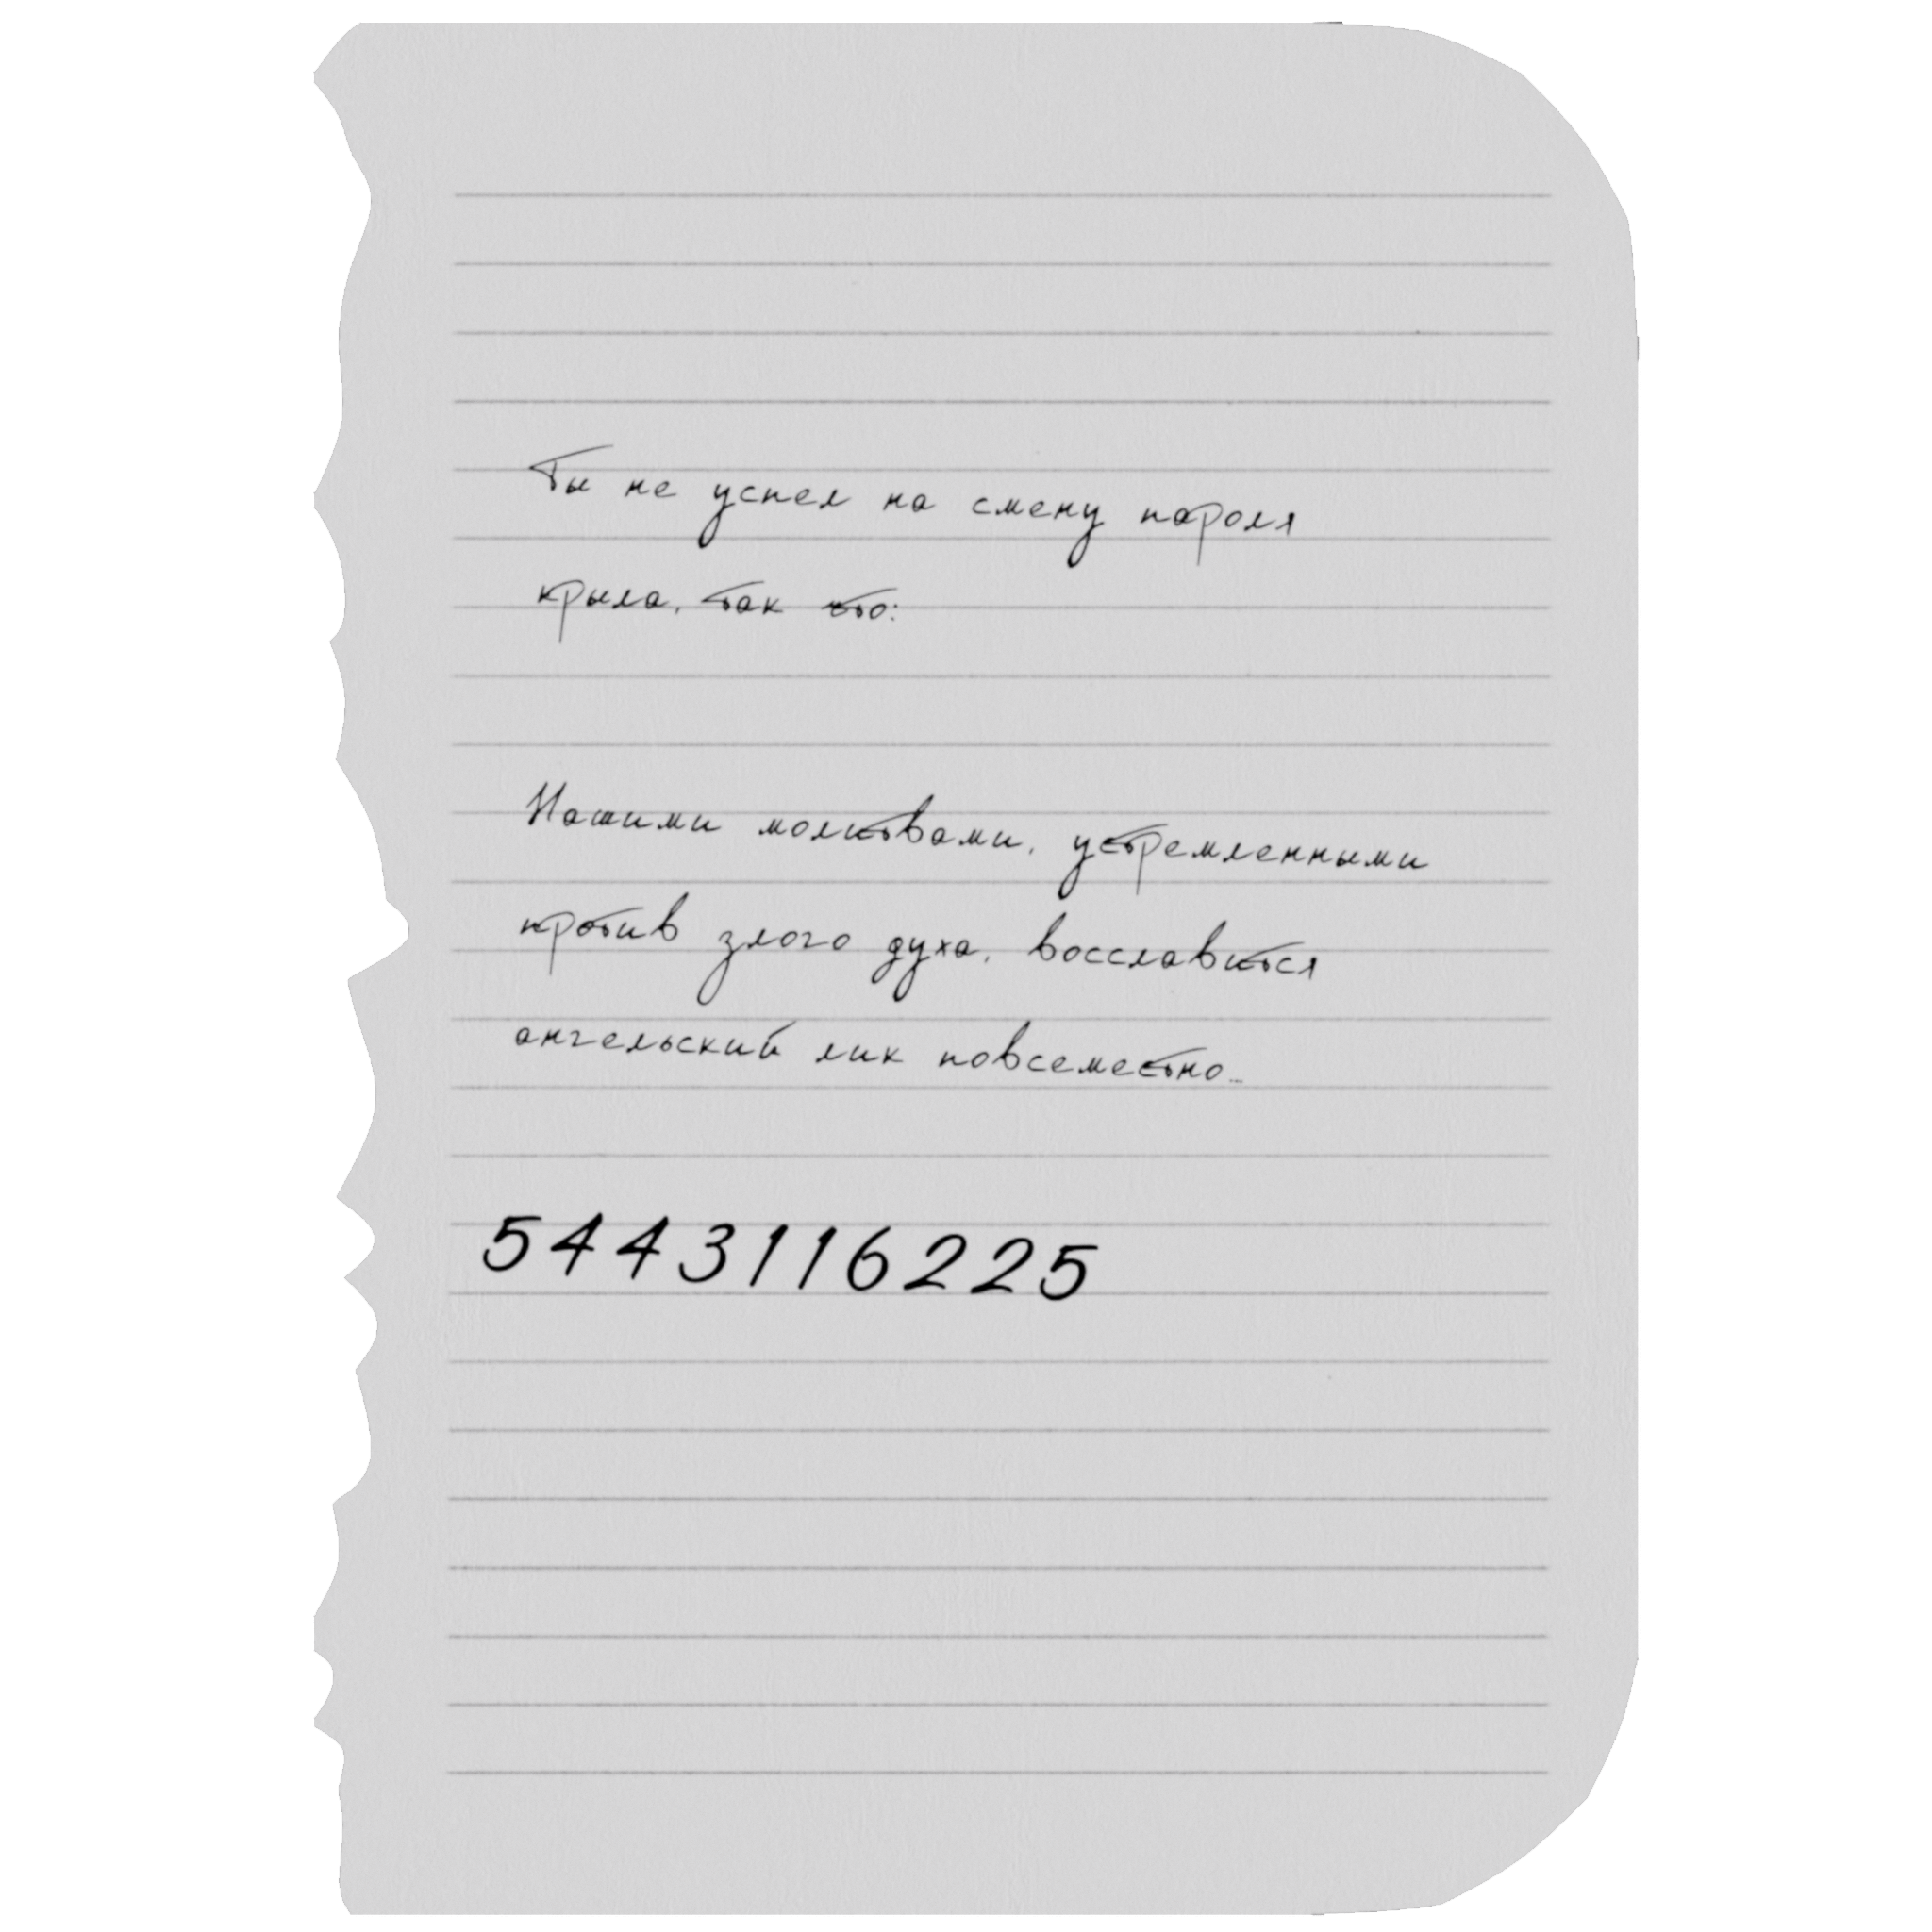 Ты не успел на смену пароля
крыла, так что:
Нашими молитвами, устремленными
против злого духа, восславится
ангельский лик повсеместно...
5443116225